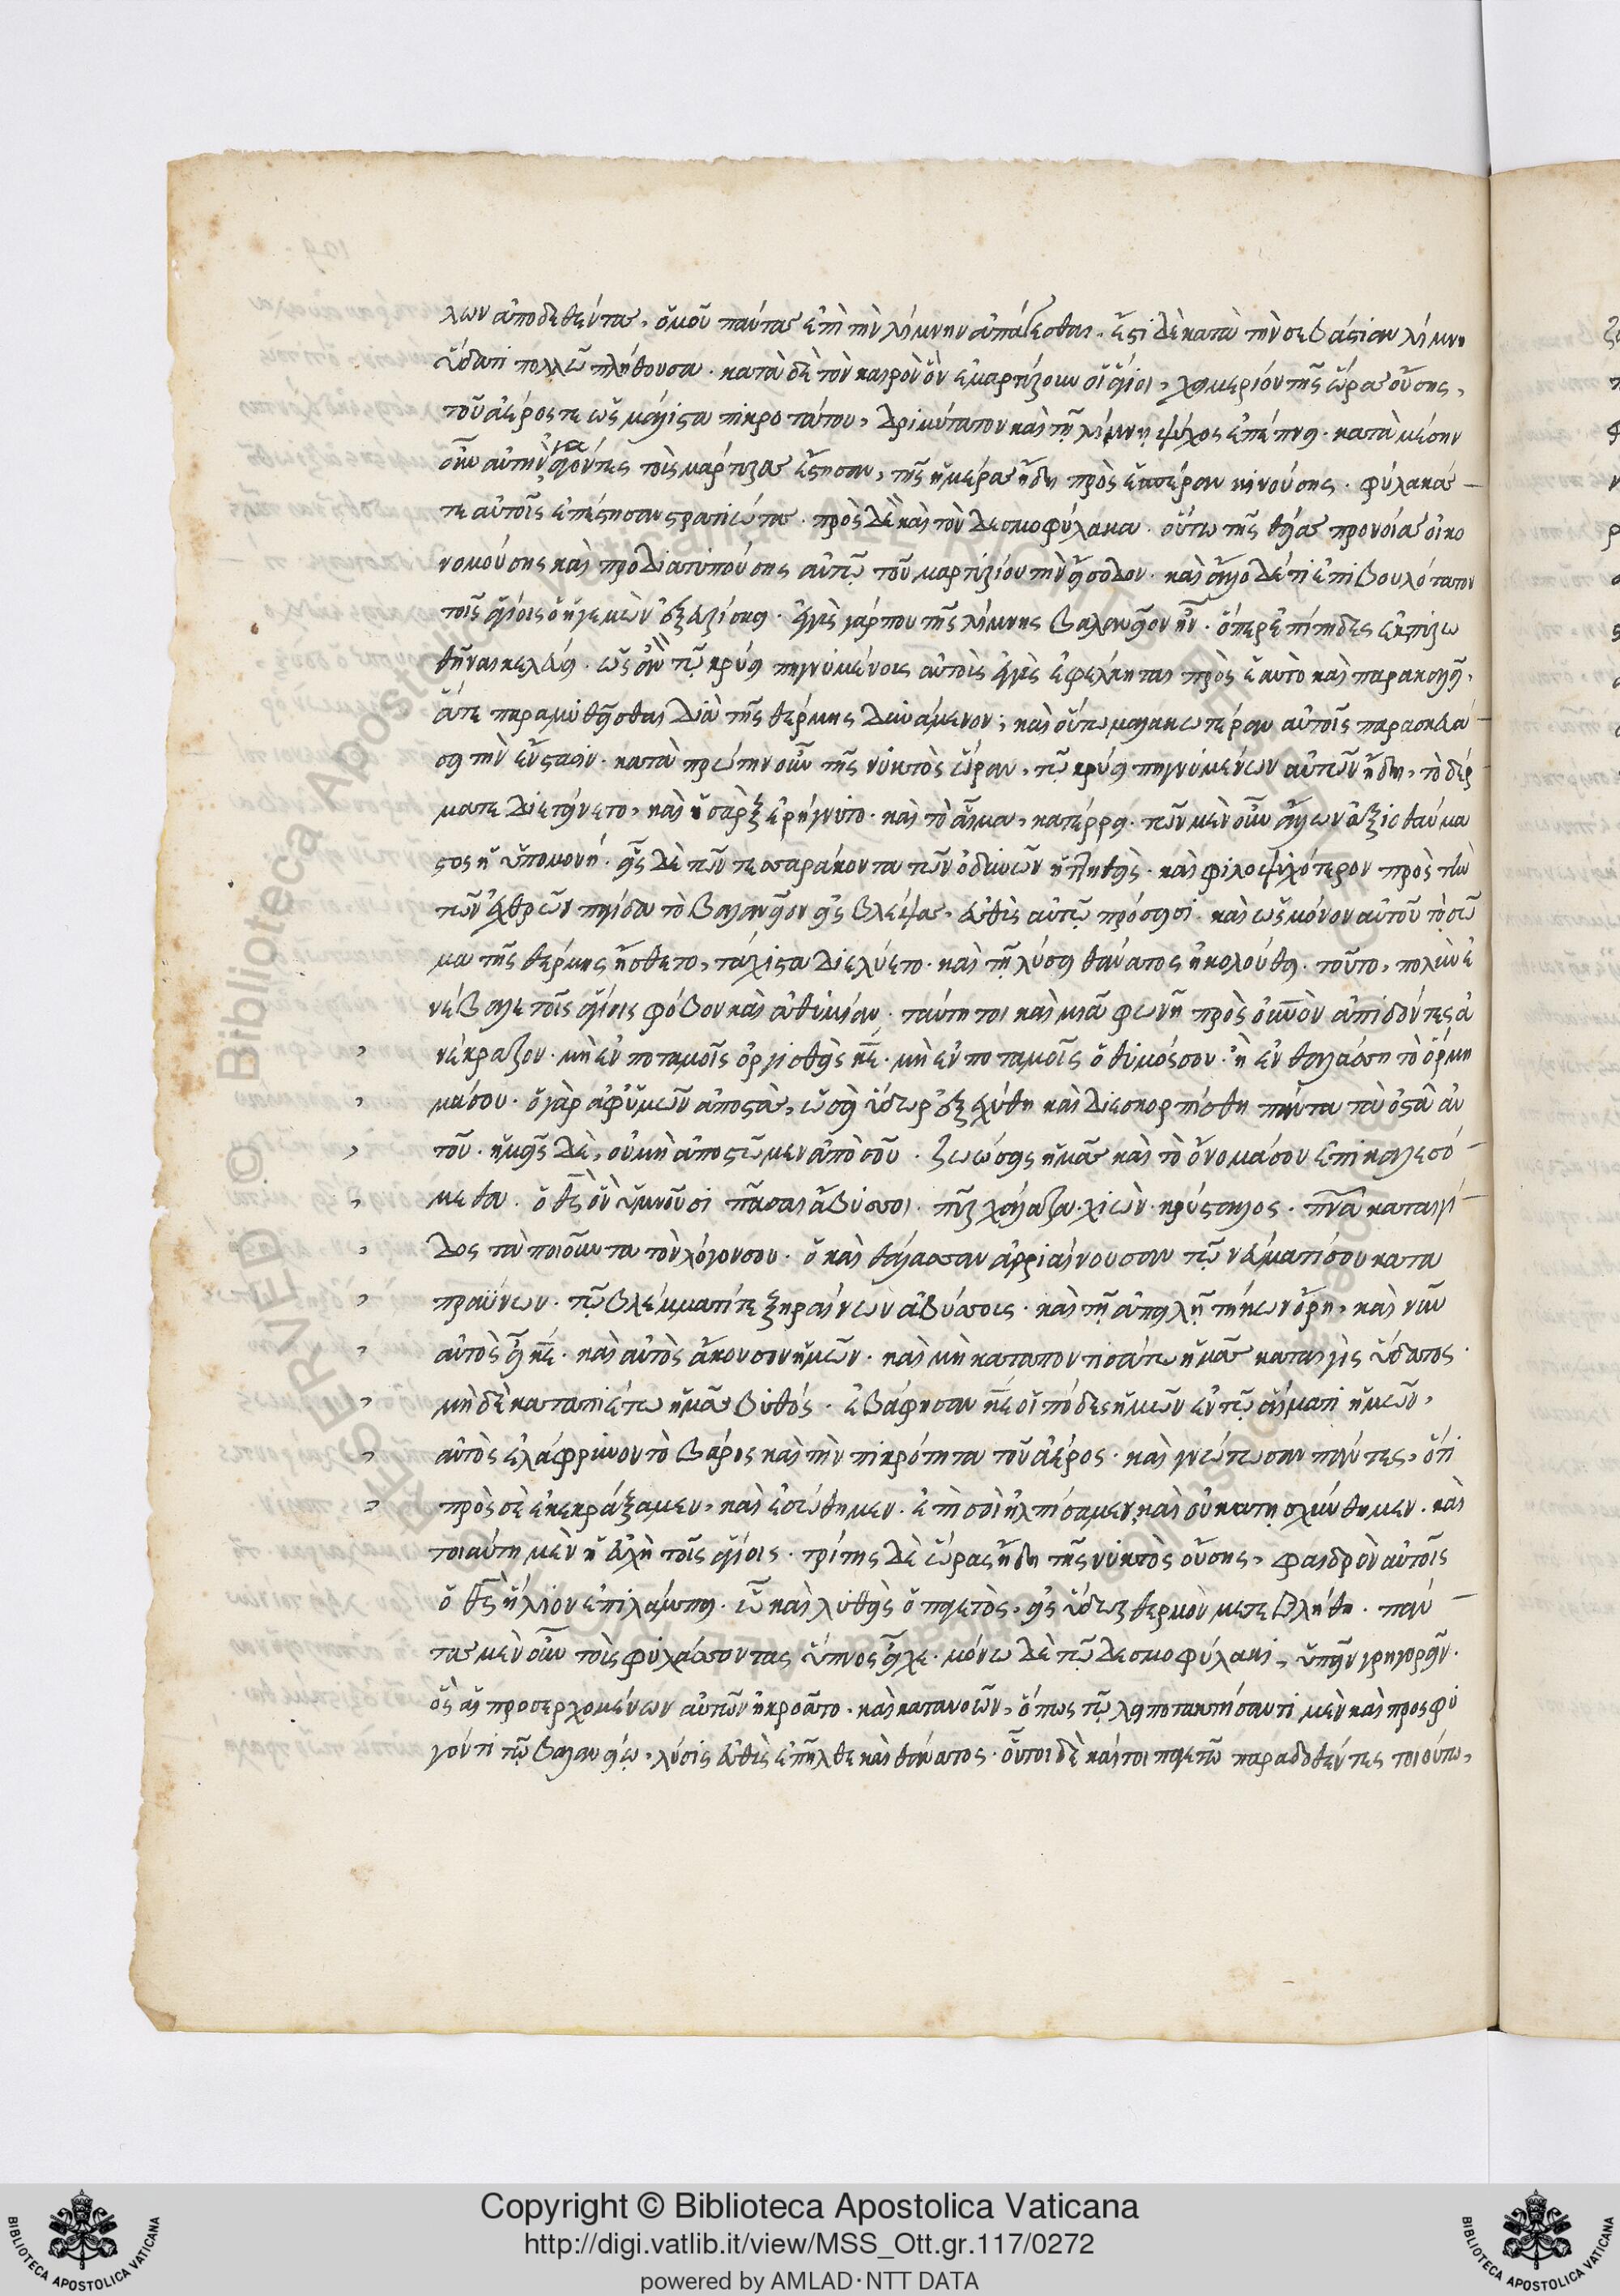 λων ἀποδεθέντας, ὁμοῦ πάντας ἐπὶ τὴν λίμνην ἀπάγεσθαι. ἔστι δὲ κατὰ τὴν σεβάστιαν λίμνη
ὕδατι πολλῶ πλήθουσα. κατὰ δὲ τὸν καιρὸν ὃν ἐμαρτύρουν οἱ ἅγιοι, χειμερίου τῆς ὥρας οὔσης,
τοῦ ἀέρος τε ὡς μάλιστα πικροτάτου, δριμύτατον καὶ τῇ λίμνῃ ψύχος ἐπέπνει. κατὰ μέσην
οὖν αὐτὴν ἀγαγόντες τοὺς μάρτυρας ἔστησαν, τῆς ἡμέρας ἤδη πρὸς ἑσπέραν κινούσης. φύλακάς
τε αὐτοῖς ἐπέστησαν στρατιώτας. πρὸς δὲ καὶ τὸν δεσμοφύλακα. οὕτω τῆς θείας προνοίας οἰκο
νομούσης καὶ προδιατυπούσης αὐτῷ τοῦ μαρτυρίου τὴν εἴσοδον. καὶ ἄλλο δέ τι ἐπιβουλότατον
τοῖς ἁγίοις ὁ ἡγεμὼν ἐξευρίσκει. ἐγγὺς γάρ που τῆς λίμνης βαλανεῖον ἦν. ὅπερ ἐπίτηδες ἐκπυρω
θῆναι κελεύει. ὡς ἂν τῷ κρύει πηγνυμένους αὐτοὺς ἐγγὺς ἐφέλκηται πρὸς ἑαυτὸ καὶ παρακαλῇ,
ἅτε παραμυθεῖσθαι διὰ τῆς θέρμης δυνάμενον, καὶ οὕτω μαλακωτέραν αὐτοῖς παρασκευά
σῃ τὴν ἔνστασιν. κατὰ πρώτην οὖν τῆς νυκτὸς ὥραν, τῷ κρύει πηγνυμένων αὐτῶν ἤδη, τὸ δέρ
μα τε διετείνετο, καὶ ἡ σὰρξ ἐρήγνυτο. καὶ τὸ αἷμα, κατέρρει. τῶν μὲν οὖν ἄλλων ἀξιοθαύμα
στος ἡ ὑπομονή. εἷς δὲ τῶν τεσσαράκοντα τῶν ὀδυνῶν ἡττηθεὶς. καὶ φιλοψυχότερον πρὸς τὴν
τῶν ἐχθρῶν παγίδα τὸ βαλανεῖον εἰσβλέψας, εὐθὺς αὐτῷ πρόσεισι. καὶ ὡς μόνον αὐτοῦ τὸ σῶ
μα τῆς θέρμης ᾔσθετο, τάχιστα διελύετο. καὶ τῇ λύσει θάνατος ἠκολούθει. τοῦτο, πολὺν ἐ
νέβαλε τοῖς ἁγίοις φόβον καὶ ἀθυμίαν. ταύτῃ τοι καὶ μιᾷ φωνῇ πρὸς οὐνὸν ἀπιδόντες ἀ
νέκραξον. μὴ ἐν ποταμοῖς ὀργισθῇς κε. μὴ ἐν ποταμοῖς ὁ θυμός σου. ἢ ἐν θαλάσσῃ τὸ ὅρμη
μά σου. ὁ γὰρ ἀφ' ἡμῶν ἀποστὰς, ὡσεὶ ὕδωρ ἐξεχύθη καὶ διεσκορπίσθη πάντα τὰ ὀστᾶ αὐ
τοῦ. ἡμεῖς δὲ, οὐ μὴ ἀποστῶμεν ἀπὸ σοῦ. ζωώσεις ἡμᾶς καὶ τὸ ὄνομά σου ἐπικαλεσό
μεθα. ὁ θς ὃν ὑμνοῦσι πᾶσαι ἄβυσσοι. πῦρ χάλαζα. χιών. κρύσταλλος. πνα καταιγί
δος τὰ ποιοῦντα τὸν λόγον σου. ὁ καὶ θάλασσαν ἀγριαίνουσαν τῷ νεύματί σου κατα
πραΰνων. τῷ βλέμματί τε ξηραίνων ἀβύσσους. καὶ τῇ ἀπειλῇ τήκων ὄρη, καὶ νῦν
αὐτὸς εἶ κε. καὶ αὐτὸς ἄκουσον ἡμῶν. καὶ μὴ καταποντισάτω ἡμᾶς καταιγὶς ὕδατος.
μηδὲ καταπιέτω ἡμᾶς βυθός. ἐβάφησαν κε οἱ πόδες ἡμῶν ἐν τῷ αἵματι ἡμῶν,
αὐτὸς ἐλάφρυνον τὸ βάρος καὶ τὴν πικρότητα τοῦ ἀέρος. καὶ γνώτωσαν πάντες, ὅτι
πρὸς σὲ ἐκεκράξαμεν, καὶ ἐσώθημεν. ἐπὶ σοὶ ἠλπίσαμεν καὶ οὐ κατῃσχύνθημεν. καὶ
τοιαύτη μὲν ἡ εὐχὴ τοῖς ἁγίοις. τρίτης δὲ ὥρας ἤδη τῆς νυκτὸς οὔσης, φαιδρὸν αὐτοῖς
ὁ θς ἥλιον ἐπιλάμπει. ᾧ καὶ λυθεὶς ὁ παγετὸς, εἰς ὕδωρ θερμὸν μετεβλήθη. πάν
τας μὲν οὖν τοὺς φυλάσσοντας ὕπνος εἶχε. μόνῳ δὲ τῷ δεσμοφύλακι, ὑπῆν γρηγορεῖν.
ὃς ἀεὶ προσερχομένων αὐτῶν ἠκροᾶτο. καὶ κατανοῶν, ὅπως τῷ λειποτακτήσαντι μὲν καὶ προσφυ
γόντι τῷ βαλανείῳ, λύσις εὐθὺς ἐπῆλθε καὶ θάνατος. οὗτοι δὲ καίτοι παγετῷ παραδοθέντες τοιούτῳ,
Copyright © Biblioteca Apostolica Vaticana
http://digi.vatlib.it/view/MSS_Ott.gr.117/0272
powered by AMLAD·NTT DATA